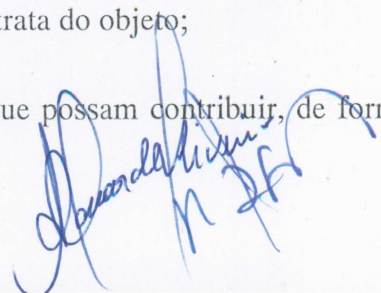 trata do objeto;
ue possam contribuir, de for